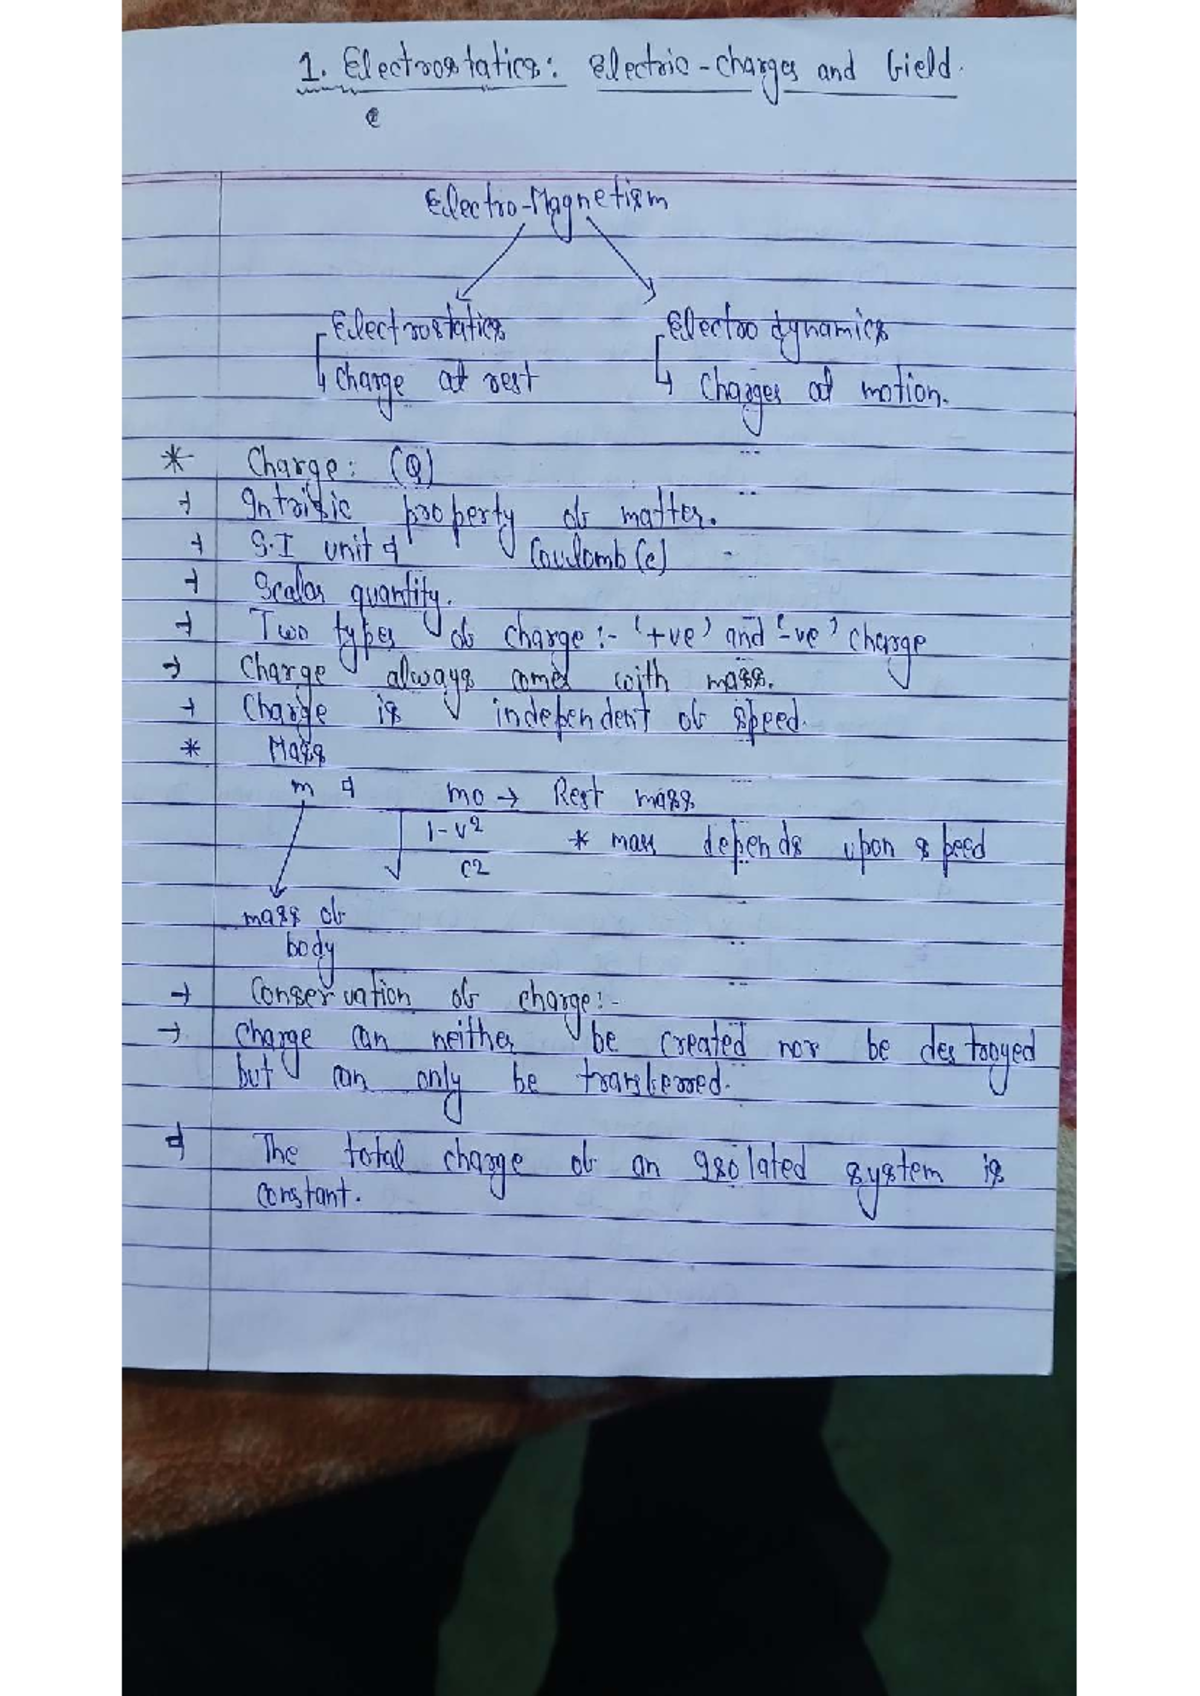 1. Electrostatics: Electric-charges and field.
e
Electro-Magnetism
Electrostatics Electro dynamics
charge at rest charges at motion.
* Charge: (Q)
→ Intrisic property of matter.
→ S.I unit → Coulomb (c)
→ Scalar quantity.
→ Two types of charge:- '+ve' and '-ve' charge
→ Charge always comes with mass.
→ Charge is independent of speed.
* Mass
m → mo → Rest mass
√ 1-v² * mass depends upon speed
c2
mass of
body
→ Conservation of charge:-
→ Charge can neither be created nor be destroyed
but can only be transferred.
→ The total charge of an isolated system is
constant.